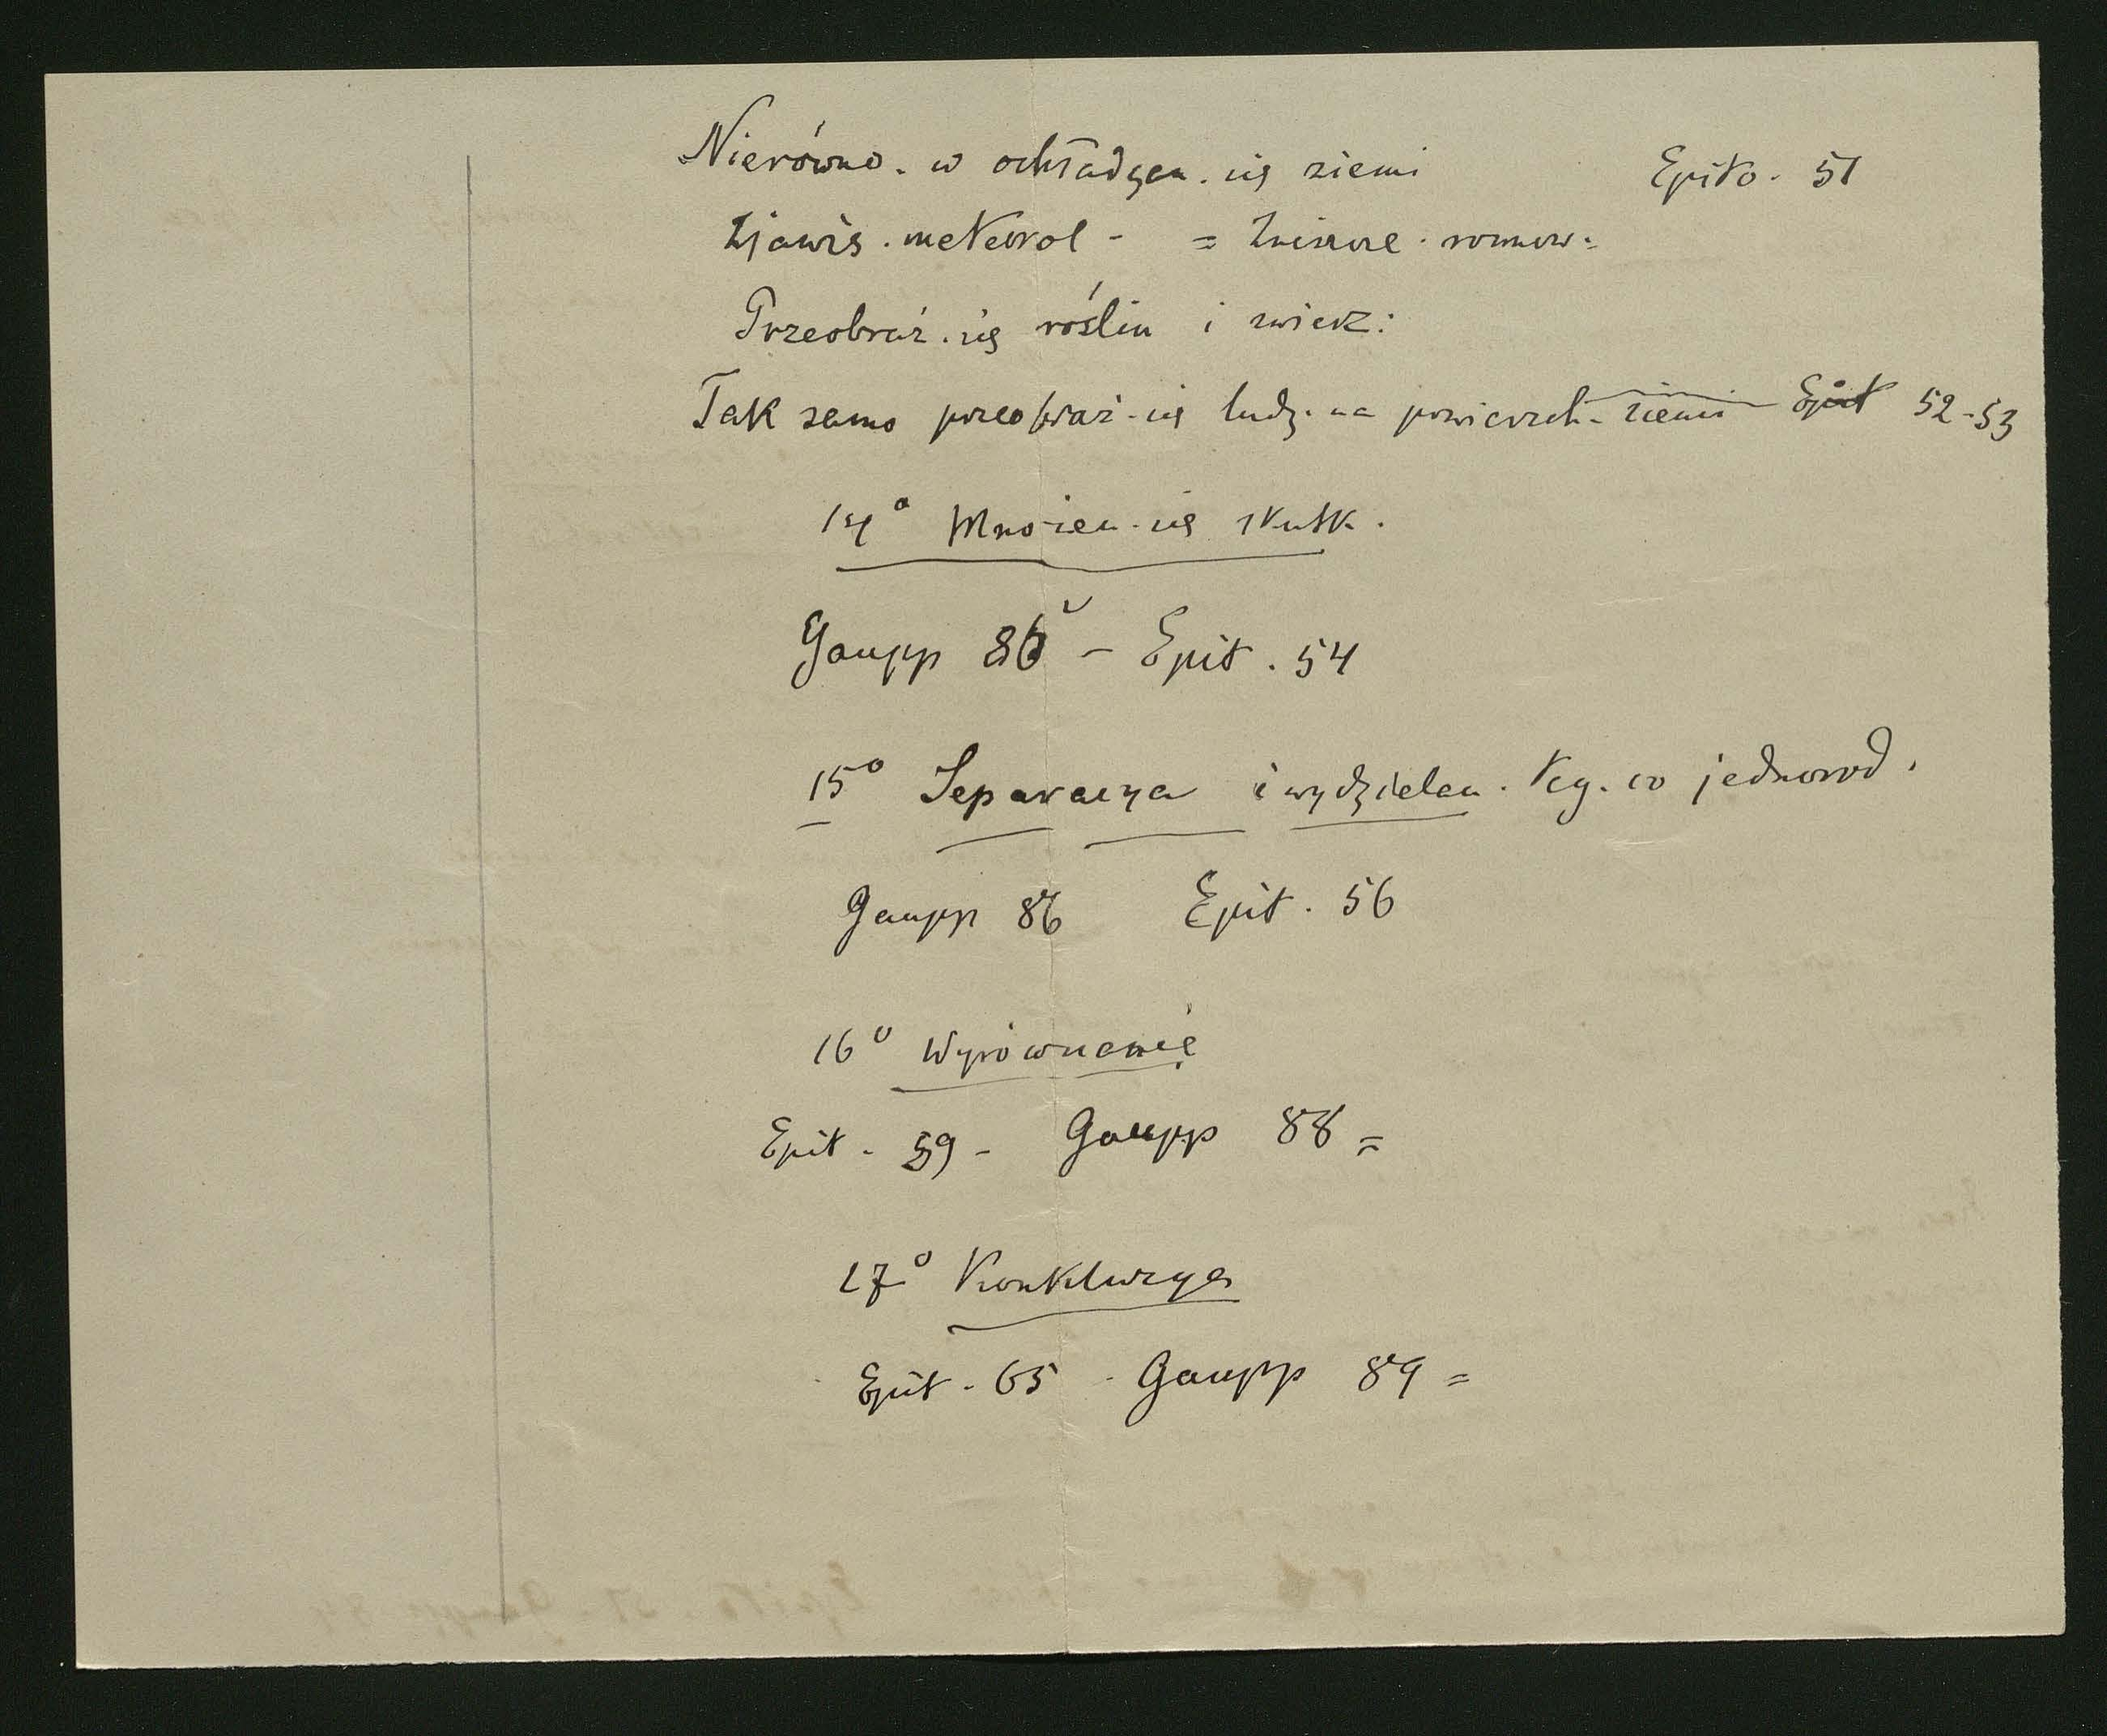 Nierówno. w ochładzan. się ziemi Epito. 51
Zjawis. meteorol - =
Przeobraż. się roślin i zwierz:
Tak samo przeobraż-się ludz. na powierzch- ziemi Epit 52-53
14° Mnożen. się skutk.
Gaupp 86 - Epit. 54
15° Separacya i wydzielan. teg. co jednorod.
Gaupp 86 Epit. 56
16° Wyrównanie
Epit. 59 - Gaupp 88 =
17° Konkluzya
Epit. 65 - Gaupp 89 =